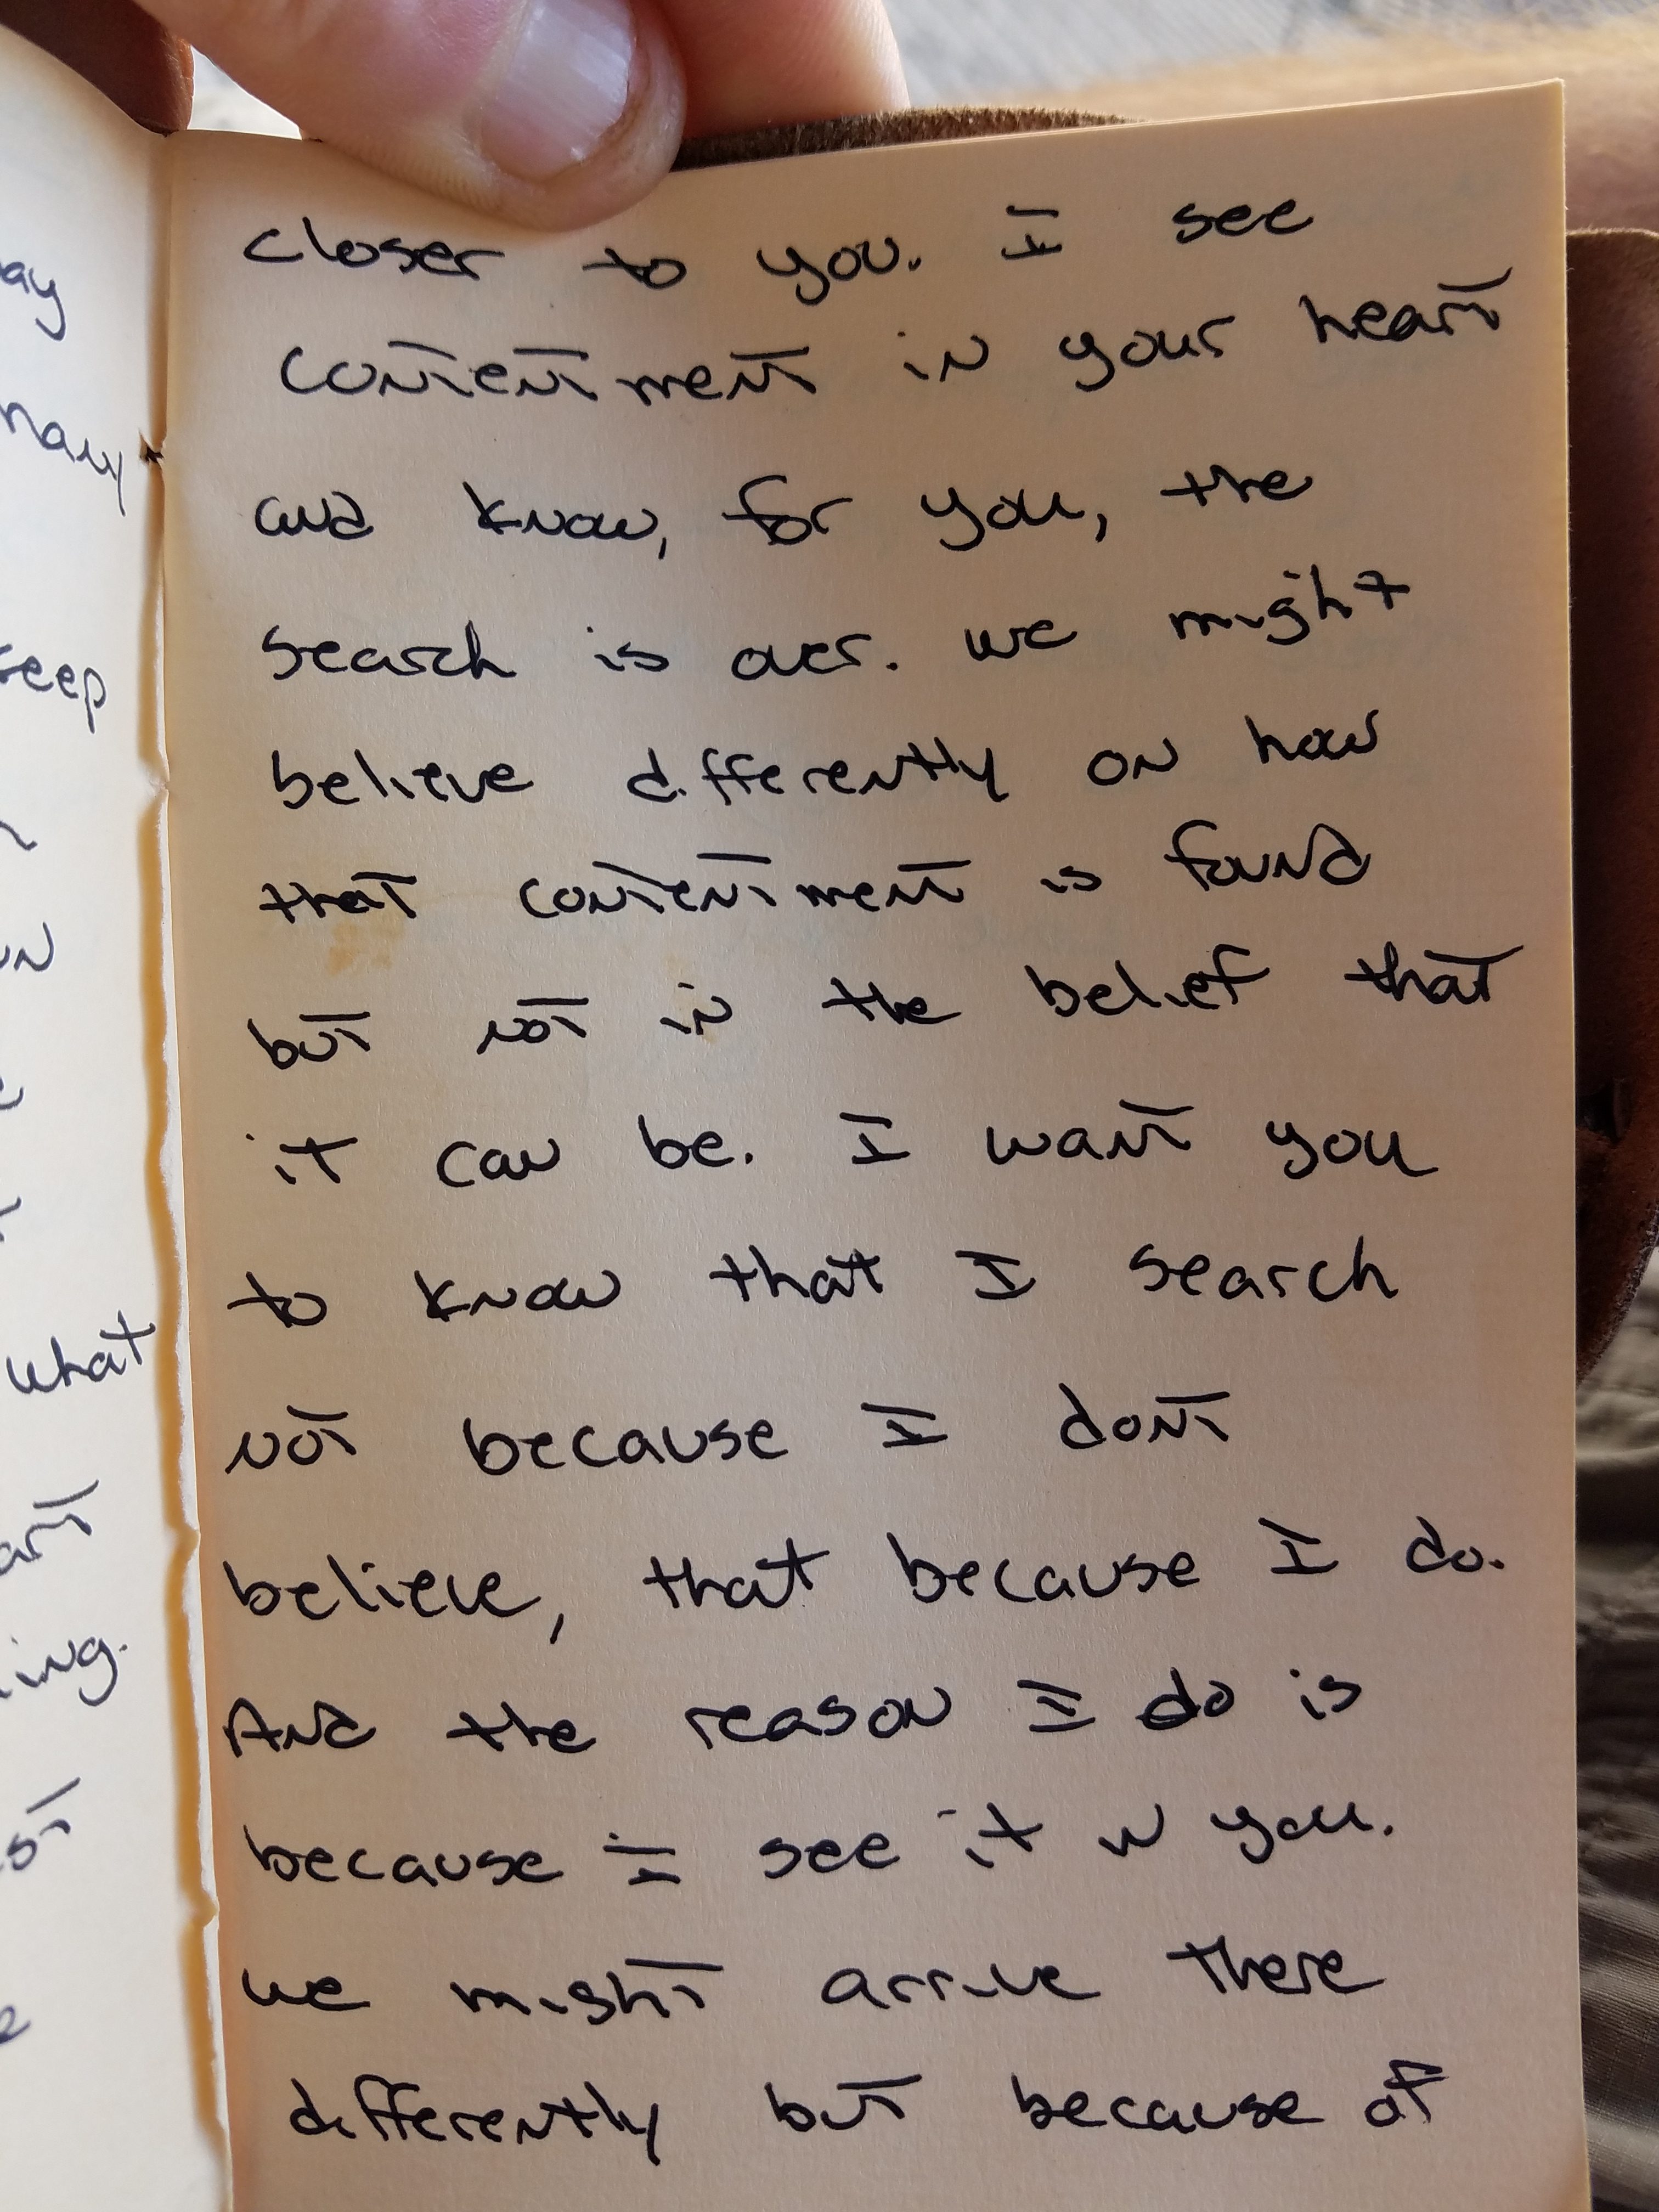 ay
many
eep
un
what
art
ing.
st
closer to you. I see
contentment in your heart
and know, for you, the
search is over. we might
believe differently on how
that contentment is found
but not in the belief that
it can be. I want you
to know that I search
not because I dont
believe, that because I do.
And the reason I do is
because I see it in you.
we might arrive there
differently but because of